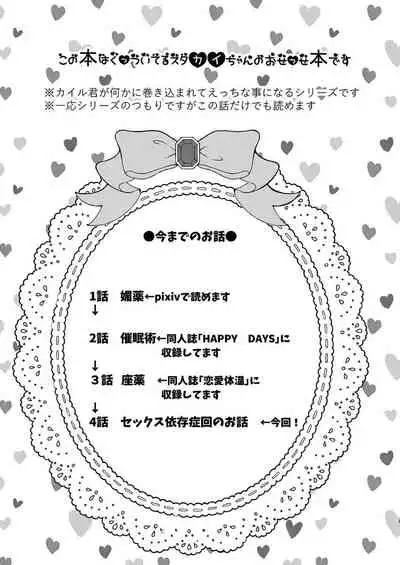 この本は
カイちゃんのお
な本です
※カイル君が何かに巻き込まれてえっちな事になるシリーズです
※一応シリーズのつもりですがこの話だけでも読めます
●今までのお話●
1話 媚薬←pixivで読めます
↓
2話 催眠術←同人誌「HAPPY DAYS」に
収録してます
↓
3話 座薬 ←同人誌「恋愛体温」に
収録してます
↓
4話 セックス依存症回のお話 ←今回!